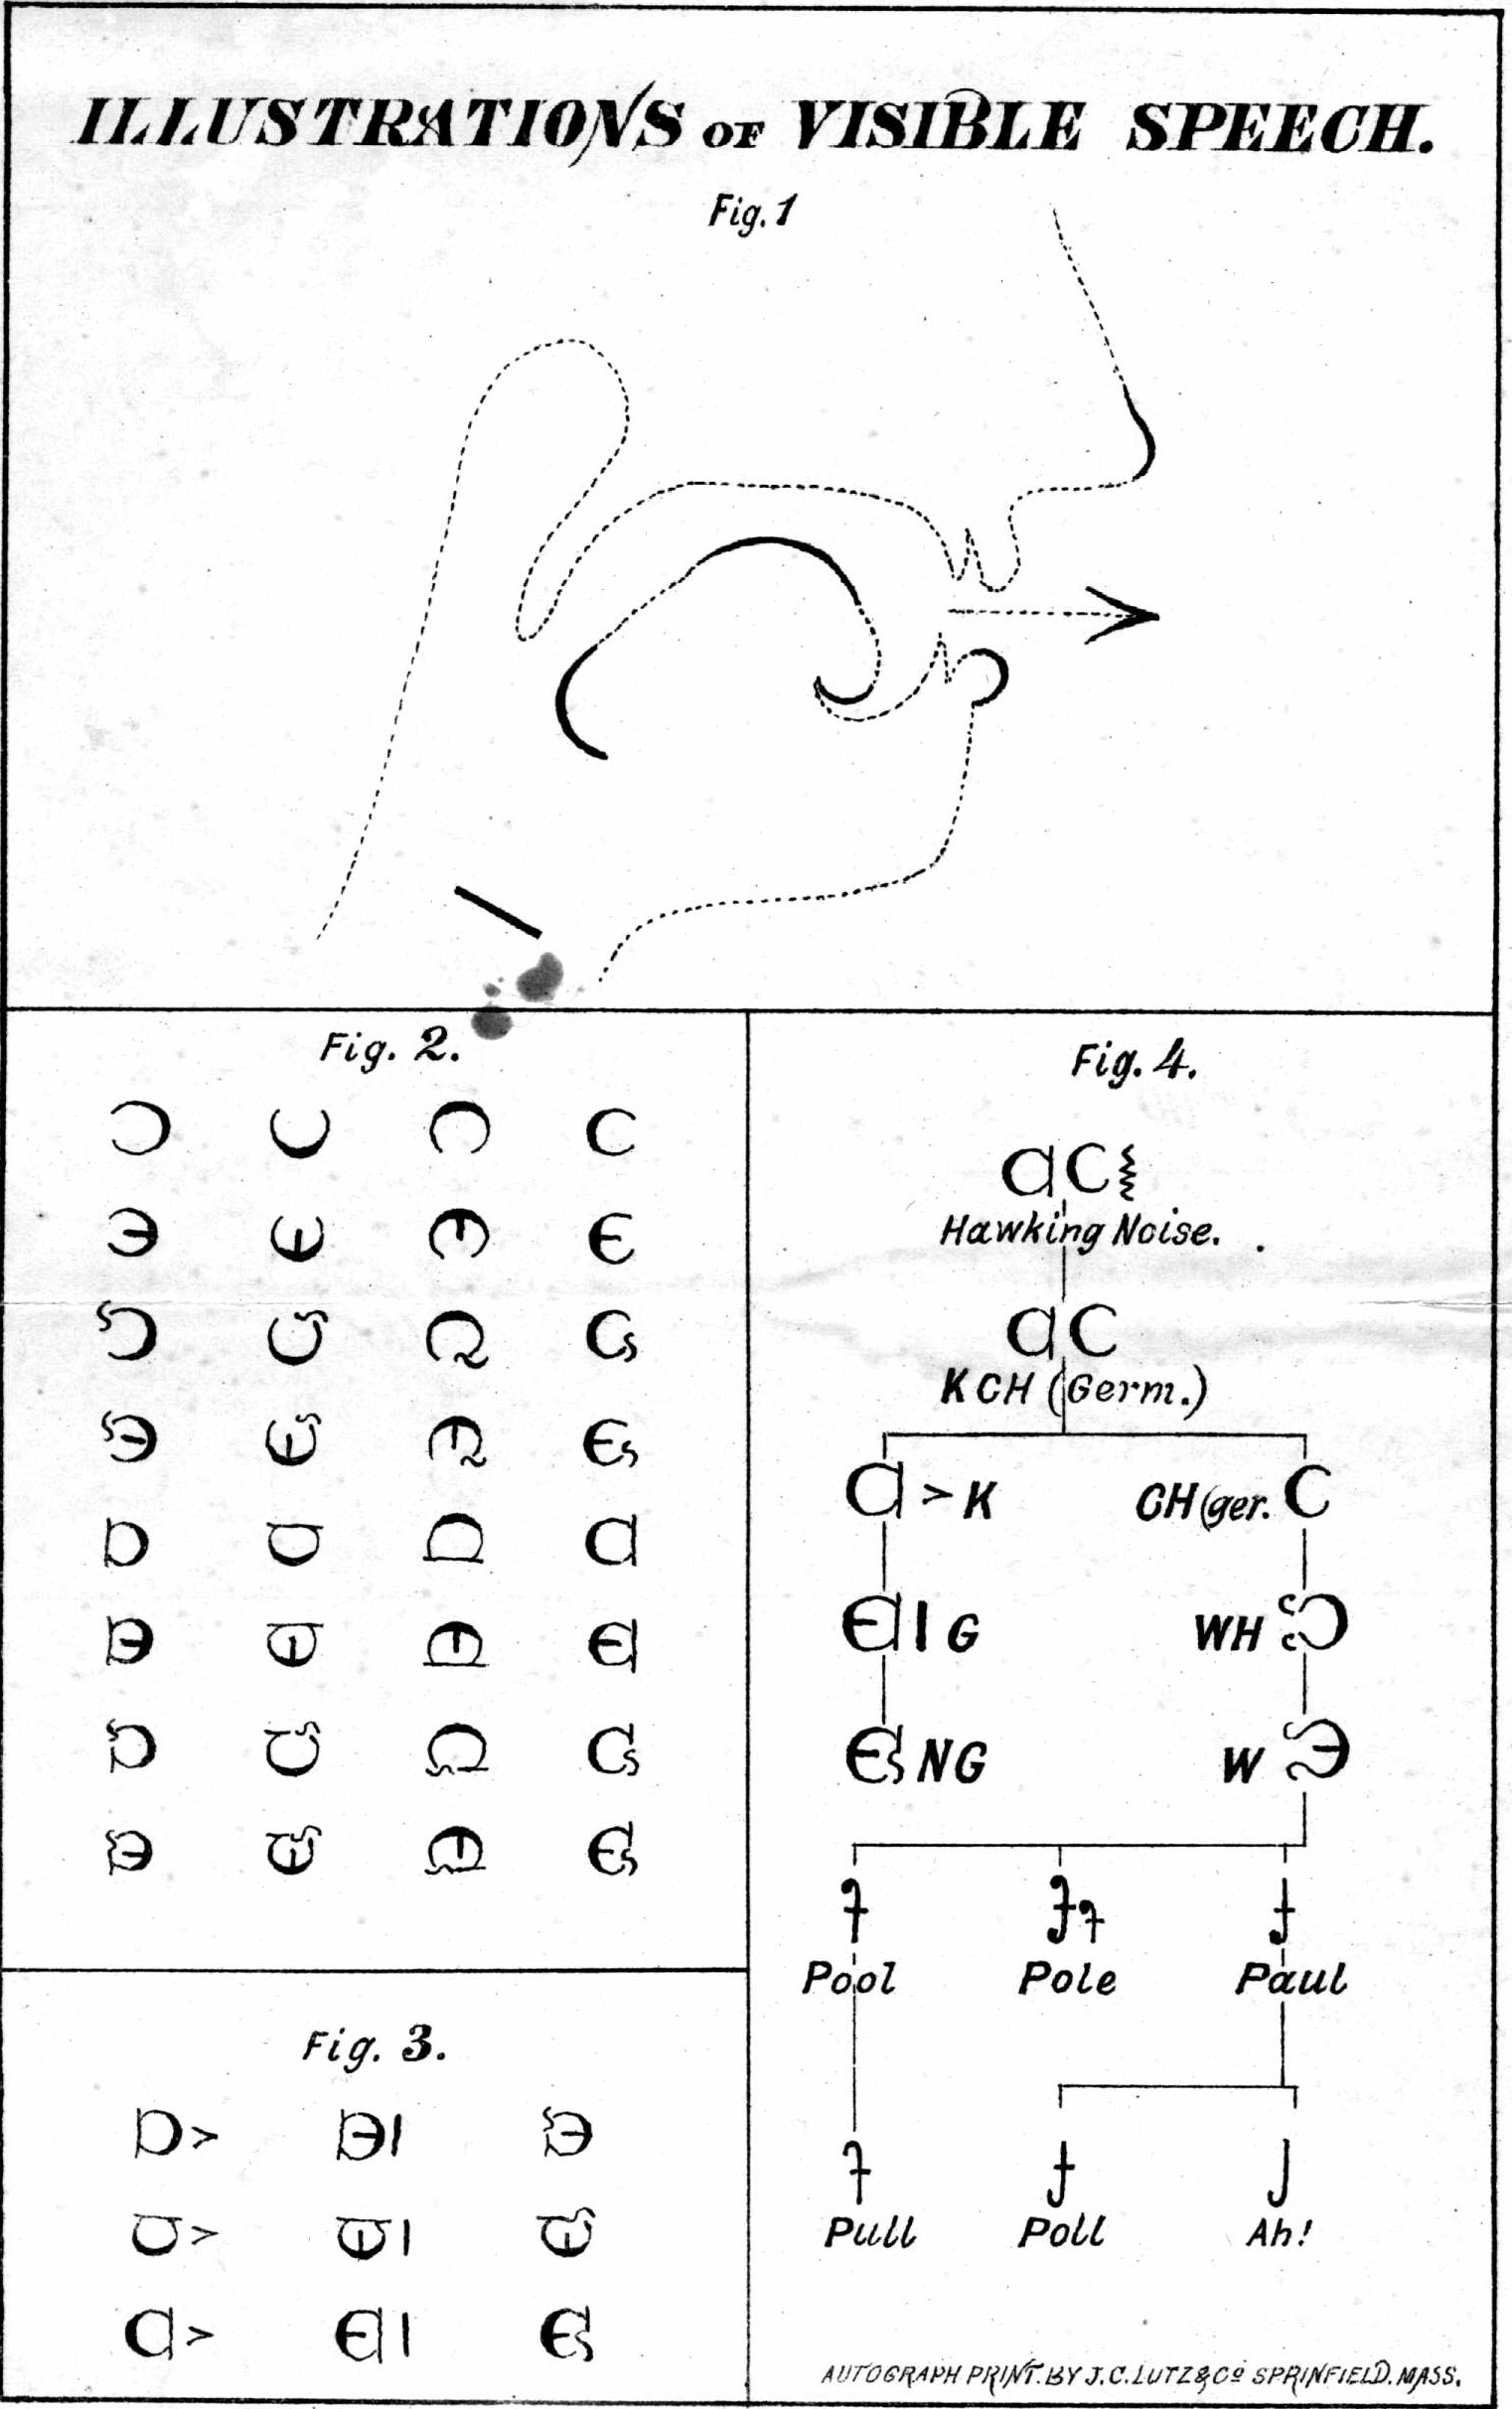 ILLUSTRATIONS OF VISIBLE SPEECH.
Fig. 1
Fig. 2.
Fig. 3.
Fig. 4.
Hawking Noise.
KCH (Germ.)
> K
CH (ger.
I G
WH
NG
W
Pool
Pole
Paul
Pull
Poll
Ah!
AUTOGRAPH PRINT. BY J.C. LUTZ & Co SPRINFIELD. MASS.